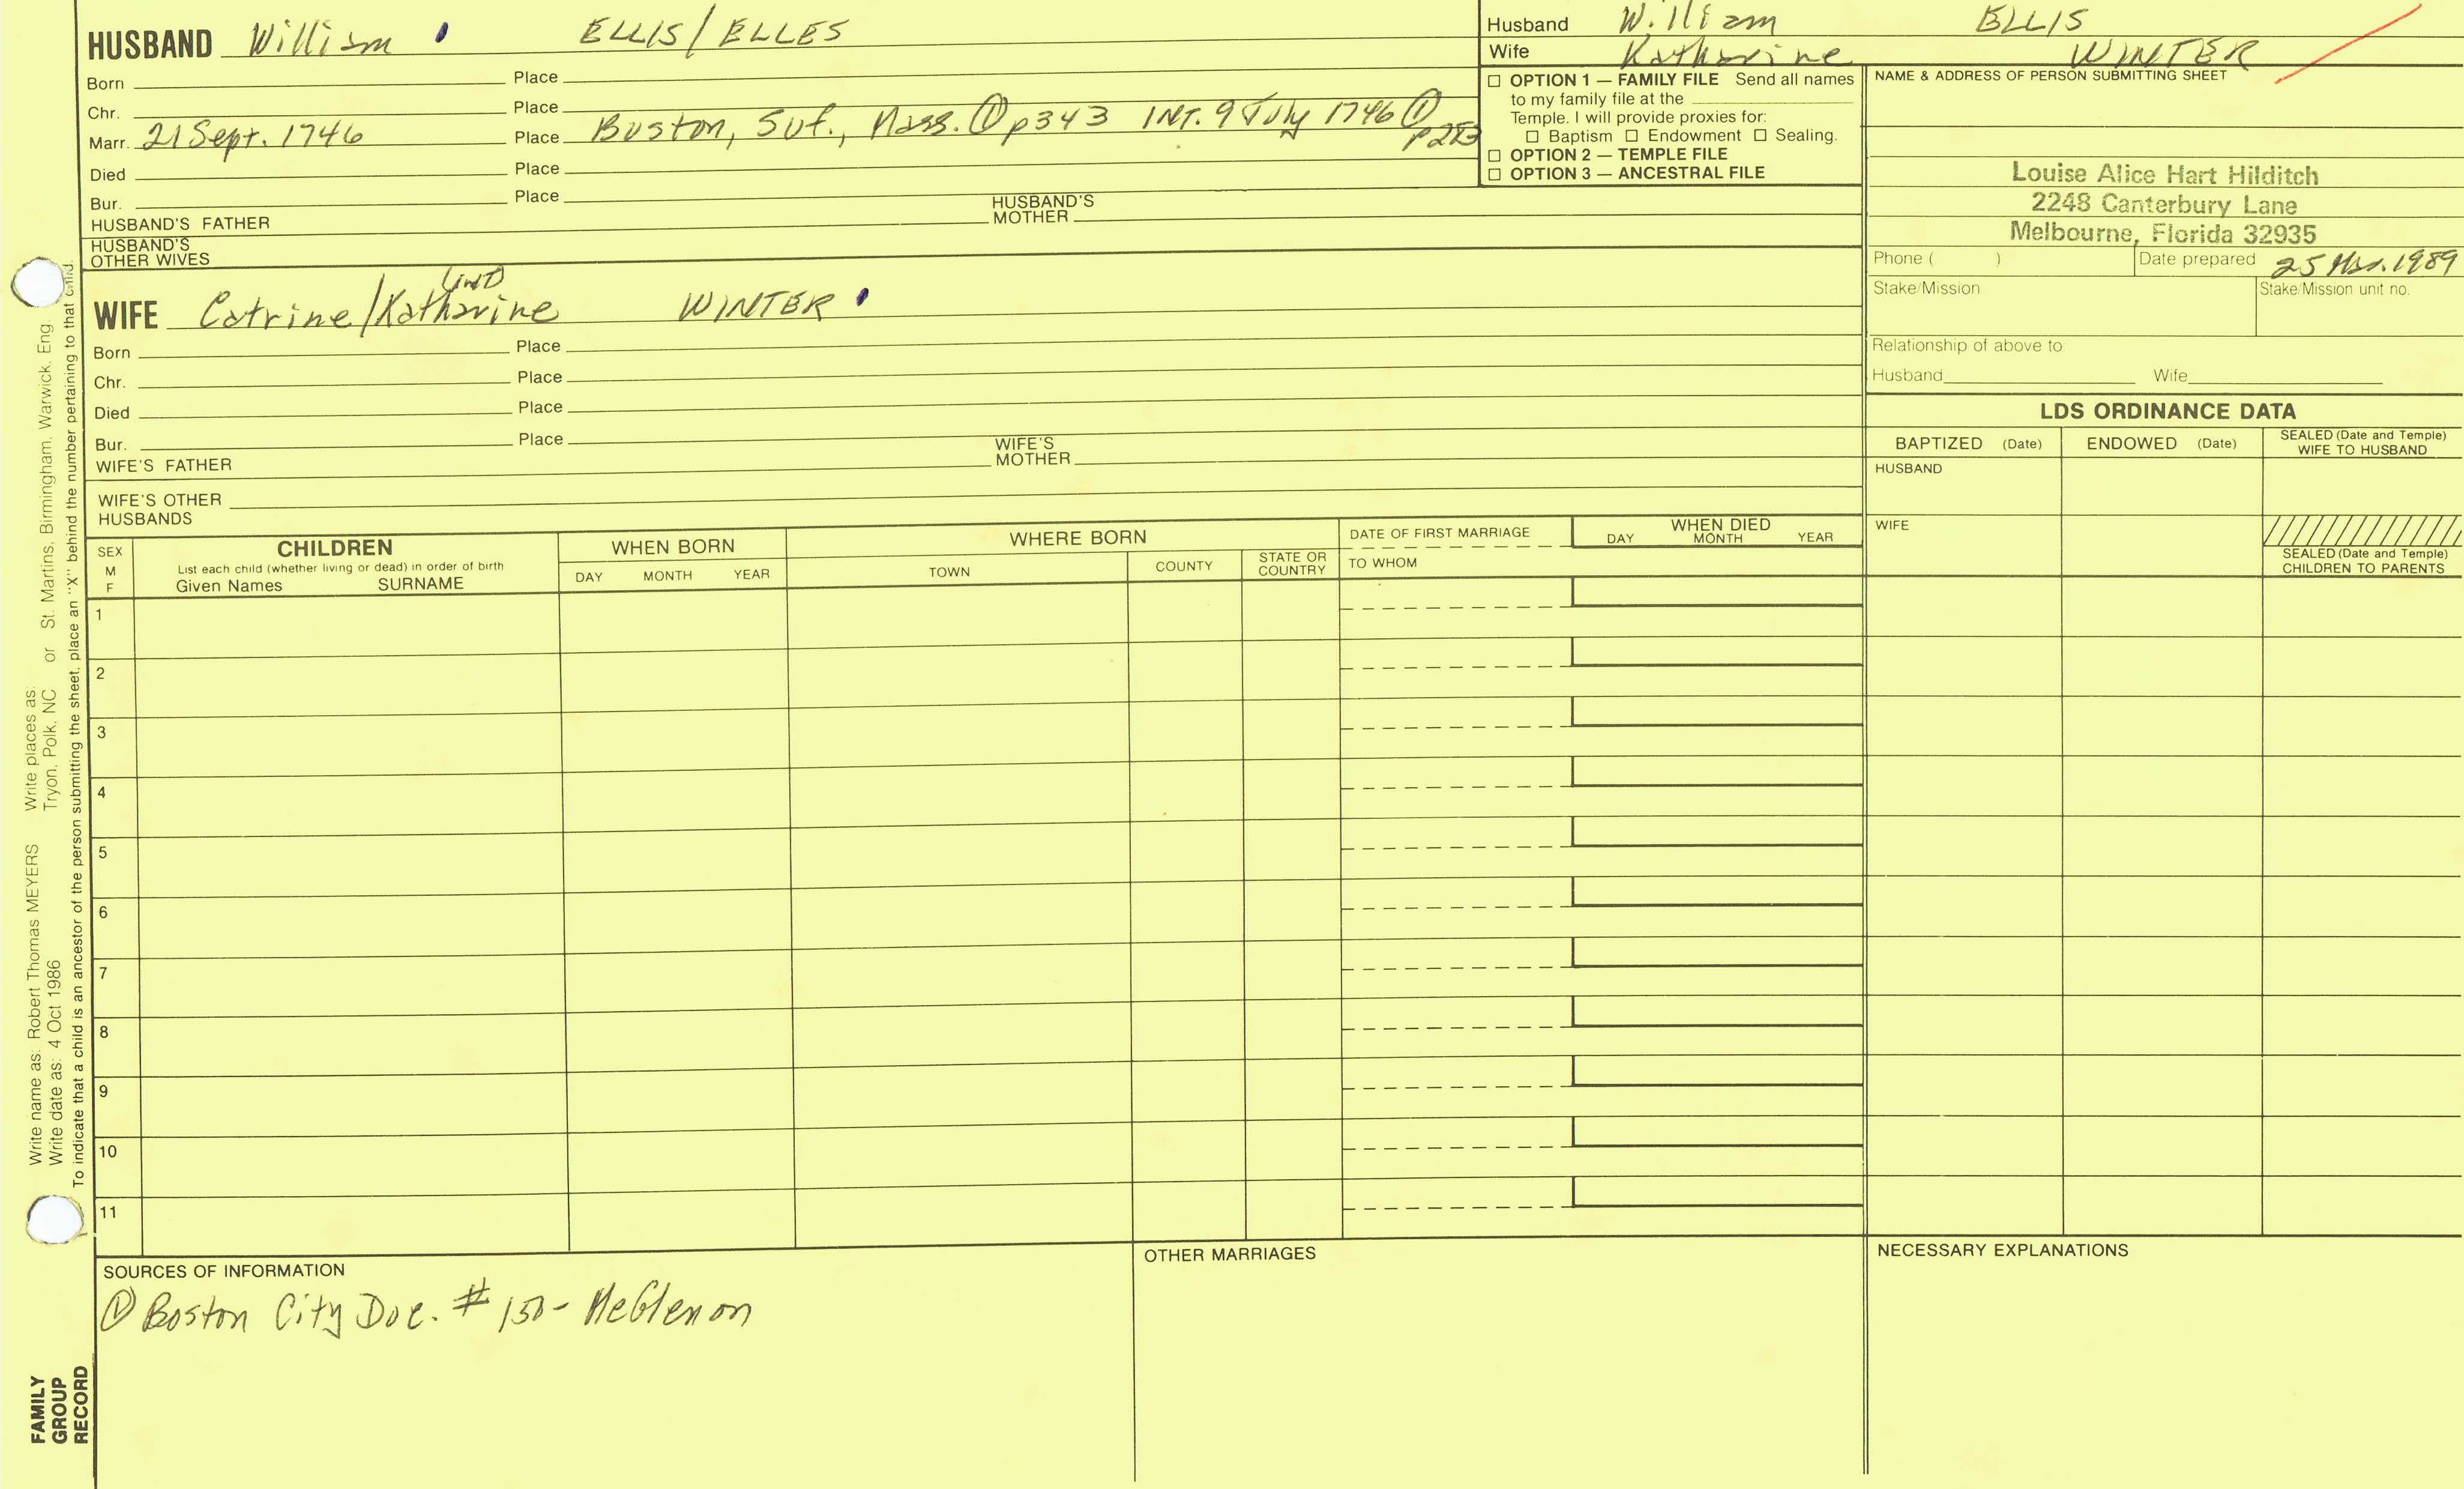 HUSBAND William ELLIS/ELLES
Born Place
Chr. Place
Marr. 21 Sept. 1746 Place Boston, Suf., Mass. ① p343 INT. 9 July 1746 ①
Died Place
Bur. Place
HUSBAND'S FATHER HUSBAND'S MOTHER
HUSBAND'S OTHER WIVES
Husband William ELLIS
Wife Katharine WINTER
☐ OPTION 1 — FAMILY FILE Send all names
to my family file at the
Temple. I will provide proxies for:
☐ Baptism ☐ Endowment ☐ Sealing.
☐ OPTION 2 — TEMPLE FILE
☐ OPTION 3 — ANCESTRAL FILE
NAME & ADDRESS OF PERSON SUBMITTING SHEET
Louise Alice Hart Hilditch
2248 Canterbury Lane
Melbourne, Florida 32935
Phone ( ) Date prepared 25 Mar. 1989
Stake/Mission Stake/Mission unit no.
Relationship of above to:
Husband Wife
WIFE Catrine/Katharine WINTER
Born Place
Chr. Place
Died Place
Bur. Place
WIFE'S FATHER WIFE'S MOTHER
WIFE'S OTHER HUSBANDS
LDS ORDINANCE DATA
BAPTIZED (Date) ENDOWED (Date) SEALED (Date and Temple) WIFE TO HUSBAND
HUSBAND
WIFE
SEALED (Date and Temple) CHILDREN TO PARENTS
SEX M F
CHILDREN
List each child (whether living or dead) in order of birth
Given Names SURNAME
WHEN BORN
DAY MONTH YEAR
WHERE BORN
TOWN COUNTY STATE OR COUNTRY
DATE OF FIRST MARRIAGE
TO WHOM
WHEN DIED
DAY MONTH YEAR
1
2
3
4
5
6
7
8
9
10
11
SOURCES OF INFORMATION
① Boston City Doc. # 150 - McGlenon
OTHER MARRIAGES
NECESSARY EXPLANATIONS
Write name as: Robert Thomas MEYERS Write places as: 
Write date as: 4 Oct 1986 Tryon, Polk, NC or St. Martins, Birmingham, Warwick, Eng.
To indicate that a child is an ancestor of the person submitting the sheet, place an "X" behind the number pertaining to that child.
FAMILY
GROUP
RECORD